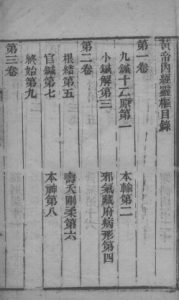 黃帝內經靈樞目錄
第一卷
九鍼十二原第一　本輸第二
小鍼解第三　邪氣藏府病形第四
第二卷
根結第五　壽夭剛柔第六
官鍼第七　本神第八
終始第九
第三卷